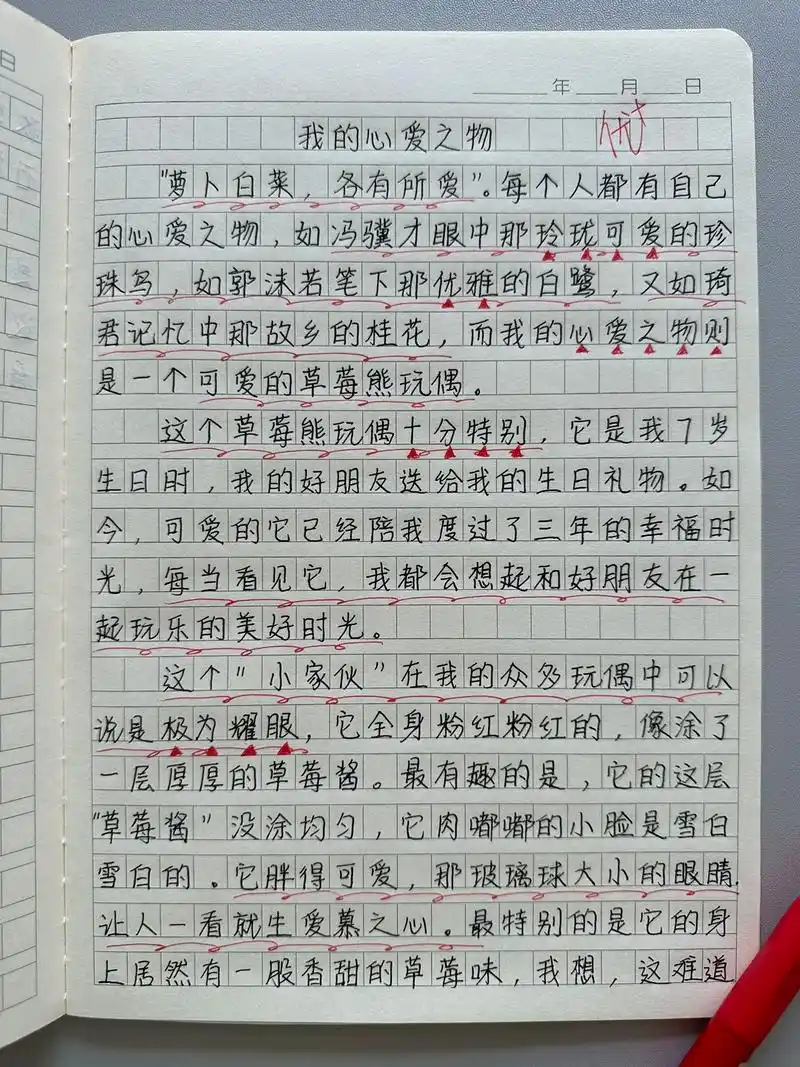 日
年 月 日
我的心爱之物
优+
“萝卜白菜，各有所爱”。每个人都有自己
的心爱之物，如冯骥才眼中那玲珑可爱的珍
珠鸟，如郭沫若笔下那优雅的白鹭，又如琦
君记忆中那故乡的桂花，而我的心爱之物则
是一个可爱的草莓熊玩偶。
这个草莓熊玩偶十分特别，它是我7岁
生日时，我的好朋友送给我的生日礼物。如
今，可爱的它已经陪我度过了三年的幸福时
光，每当看见它，我都会想起和好朋友在一
起玩乐的美好时光。
这个“小家伙”在我的众多玩偶中可以
说是极为耀眼，它全身粉红粉红的，像涂了
一层厚厚的草莓酱。最有趣的是，它的这层
“草莓酱”没涂均匀，它肉嘟嘟的小脸是雪白
雪白的。它胖得可爱，那玻璃球大小的眼睛，
让人一看就生爱慕之心。最特别的是它的身
上居然有一股香甜的草莓味，我想，这难道